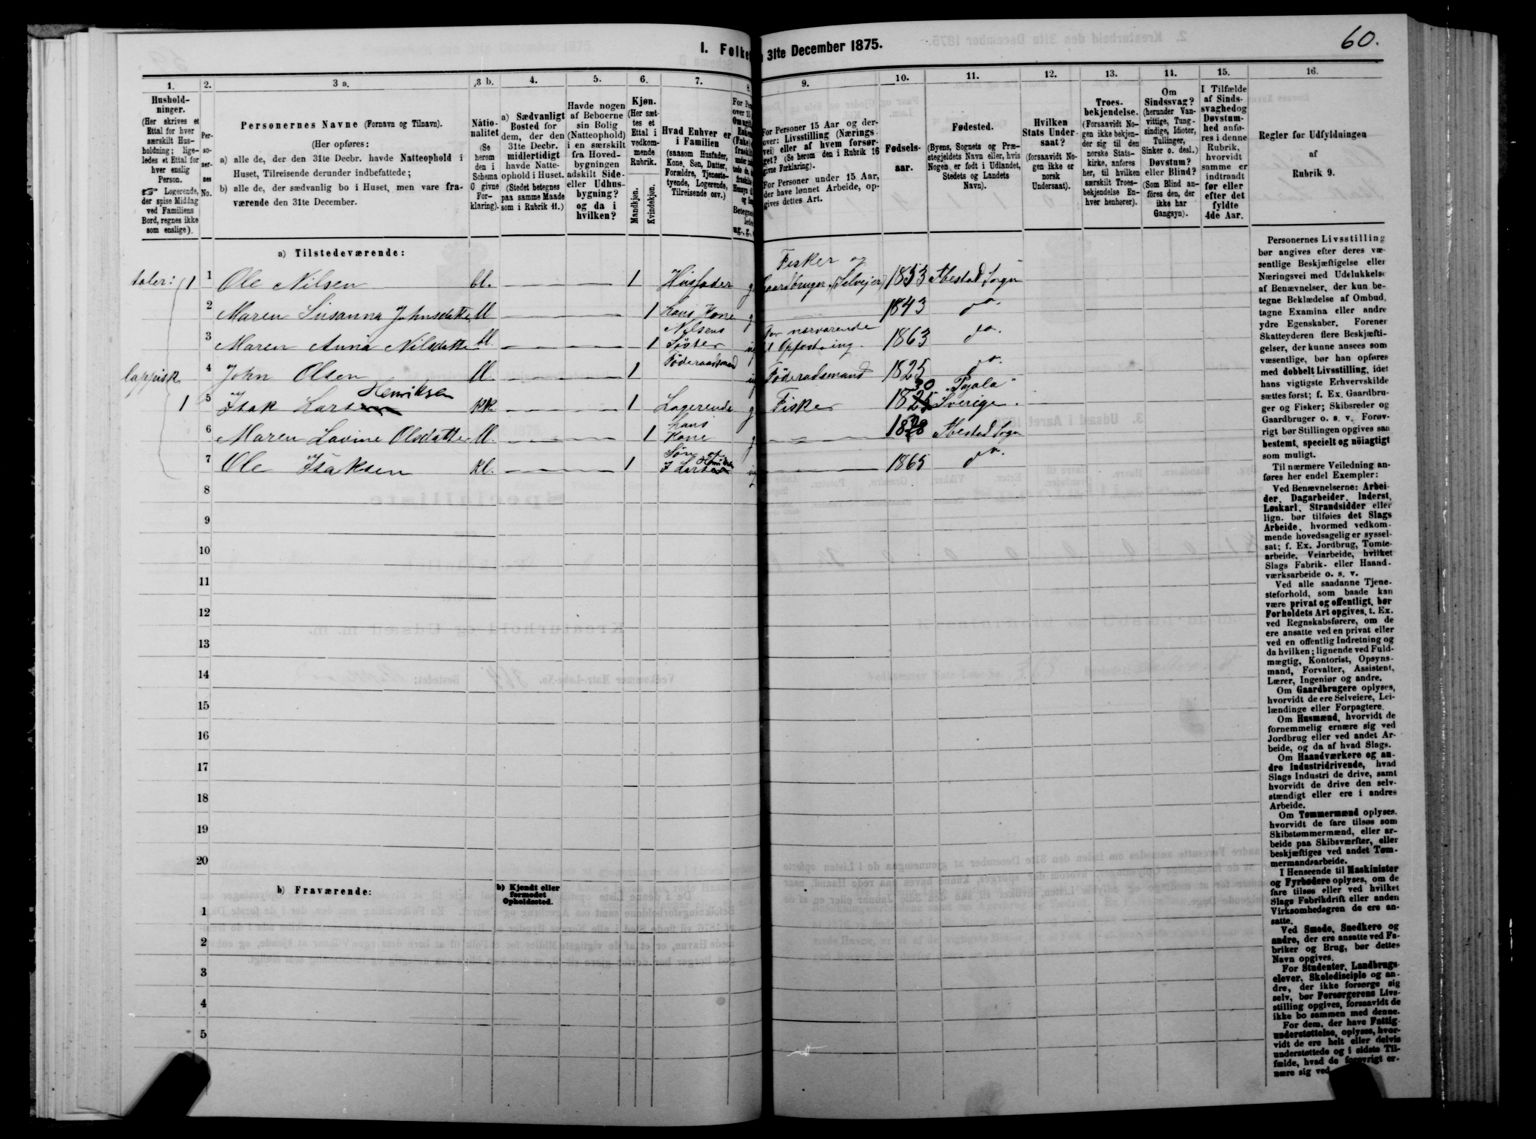 I. Folke
31te December 1875.
60.
1.
2.
3 a.
3 b.
4.
5.
6.
7.
8.
9.
10.
11.
12.
13.
14.
15.
16.
Hushold-
ninger.
(Her skrives et
Ettal for hver
særskilt Hus-
holdning; lige-
ledes et Ettal for
hver enslig
Person.
Logerende,
der spise Middag
ved Familiens
Bord, regnes ikke
som enslige).
Per-
so-
ner-
nes
No.
Personernes Navne (Fornavn og Tilnavn).
(Her opføres:
a) alle de, der den 31te Decbr. havde Natteophold i
Huset, Tilreisende derunder indbefattede;
b) alle de, der sædvanlig bo i Huset, men vare fra-
værende den 31te December.
Natio-
nalitet
(Se
herom
den i
Schema
0 givne
For-
klaring).
a) Sædvanligt
Bosted for
dem, der den
31te Decbr.
midlertidigt
havde Natte-
ophold i Huset.
(Stedet betegnes
paa samme Maade
som i Rubrik 11.)
Havde nogen
af Beboerne
sin Bolig
(Natteophold)
i en særskilt
fra Hoved-
bygningen
adskilt Side-
eller Udhus-
bygning?
og da i
hvilken?
Kjøn.
(Her sæt-
tes et
Ettal i
vedkom-
mende
Rubrik.
Mandkjøn.
Kvindekjøn.
Hvad Enhver er
i Familien
(saasom Husfader,
Kone, Søn, Datter,
Forældre, Tjeneste-
tyende, Logerende,
Tilreisende osv.)
For Personer 15 Aar og der-
over: Livsstilling (Nærings-
vei) eller af hvem forsør-
get? (Se herom den i Rubrik 16
givne Forklaring).
For Personer under 15 Aar,
der have lønnet Arbeide, op-
gives dettes Art.
Fødsels-
aar.
Fødested.
(Byens, Sognets og Præ-
stegjeldets Navn eller, hvis
Nogen er født i Udlandet,
Stedets og Landets
Navn).
Hvilken
Stats Under-
saat?
(forsaavidt No-
gen ikke er
norsk
Undersaat).
Troes-
bekjendelse.
(Forsaavidt No-
gen ikke bekjen-
der sig til den
norske Stats-
kirke, anføres
her, til hvilken
særskilt Troes-
bekjendelse En-
hver henhører).
Om
Sindssvag?
(herunder Van-
vittige, Tung-
sindige, Idioter,
Tullinger,
Sinker o. desl.)
Døvstum?
eller Blind?
(Som Blind an-
føres den, der
ikke har
Gangsyn).
I Tilfælde
af Sinds-
svaghedog
Døvstum-
hed anfø-
res i denne
Rubrik,
hvorvidt
samme er
indtraadt
før eller
efter det
fyldte
4de Aar.
Regler for Udfyldningen
af
Rubrik 9.
a) Tilstedeværende:
taler: 1 1 Ole Nilsen bl. 1 Husfader g Fisker og Gaardbruger (Selveier) 1853 Ibestad Sogn
2 Maren Susanna Johnsdatter bl 1 hans Kone g 1843 do.
3 Maren Anna Nilsdatter bl. 1 Nilsens Søster 1863 do.
lappisk 4 John Olsen bl. 1 Føderaadsmand Føderaadsmand 1825 do.
1 5 Isak Larsen Henriksen KK 1 Logerende g Fisker 1825 20 Sverige
6 Maren Lovine Olsdatter bl. 1 hans Kone g Ibestad Sogn
7 Ole Isaksen Kl. 1 Søn af 1865 do.
8
9
10
11
12
13
14
15
16
17
18
19
20
b) Fraværende:
b) Kjendt eller
formodet
Opholdssted.
1
2
3
4
5
Personernes Livsstilling
bør angives efter deres væ-
sentlige Beskjæftigelse eller
Næringsvei med Udelukkelse
af Benævnelser, der kun be-
tegne Beklædelse af Ombud,
tagne Examina eller andre
ydre Egenskaber. Forener
Skatteyderen flere Beskjæfti-
gelser, der kunne ansees som
væsentlige, bør han opføres
med dobbelt Livsstilling, idet
hans vigtigste Erhvervskilde
sættes først; f. Ex. Gaardbru-
ger og Fisker; Skibsreder og
Gaardbruger o. s. v. Forøv-
rigt bør Stillingen opgives saa
bestemt, specielt og nöiagtigt
som muligt.
Til nærmere Veiledning an-
føres her endel Exempler:
Ved Benævnelserne: Arbei-
der, Dagarbeider, Inderst,
Løskarl, Strandsidder eller
lign. bør tilføies det Slags
Arbeide, hvormed vedkom-
mende hovedsagelig er syssel-
sat; f. Ex. Jordbrug, Tomte-
arbeide, Veiarbeide, hvilket
Slags Fabrik- eller Haand-
værksarbeide o. s. v.
Ved alle saadanne Tjene-
steforhold, som baade kan
være privat og offentligt, bør
Forholdets Art opgives, t. Ex.
ved Regnskabsførere, om de
ere ansatte ved en privat eller
ved en offentlig Indretning og
da hvilken; lignende ved Fuld-
mægtig, Kontorist, Opsyns-
mand, Forvalter, Assistent,
Lærer, Ingeniør og andre.
Om Gaardbrugere oplyses,
hvorvidt de ere Selveiere, Lei-
lændinge eller Forpagtere.
Om Husmænd, hvorvidt de
fornemmelig ernære sig ved
Jordbrug eller ved andet Ar-
beide, og da af hvad Slags.
Om Haandværkere og an-
dre Industridrivende, hvad
Slags Industri de drive, samt
hvorvidt de drive den selv-
stændigt eller ere i andres
Arbeide.
Om Tømmermænd oplyses,
hvorvidt de fare tilsøs som
Skibstømmermænd, eller ar-
beide paa Skibsværfter, eller
beskjæftiges ved andet Tøm-
mermandsarbeide.
I Henseende til Maskinister
og Fyrbødere oplyses, om de
fare tilsøs eller ved hvilket
Slags Fabrikdrift eller anden
Virksomhedsgren de ere an-
satte.
Ved Smede, Snedkere og
andre, der ere ansatte ved Fa-
briker og Brug, bør dettes
Navn opgives.
For Studenter, Landbrugs-
elever, Skoledisciple og an-
dre, der ikke forsørge sig
selv, bør Forsørgerens Livs-
stilling opgives, forsaavidt de
ikke bo sammen med denne.
For dem, der have Fattig-
understøttelse, oplyses, hvor-
vidt de ere helt eller delvis
understøttede og i sidste Til-
fælde, hvad de forøvrigt er-
nære sig ved